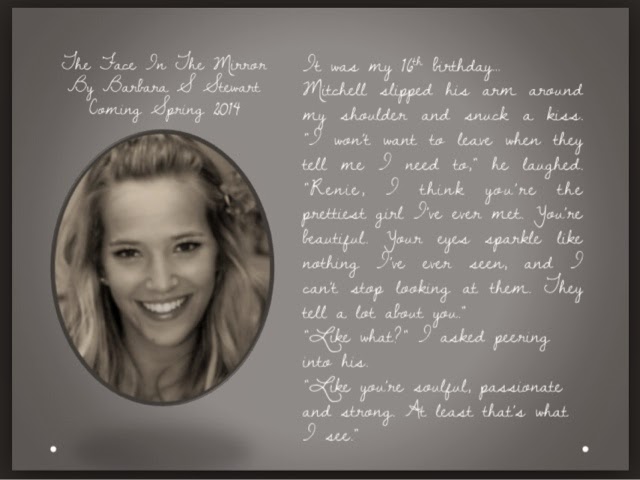 The Face In The Mirror
By Barbara S Stewart
Coming Spring 2014
It was my 16th birthday...
Mitchell slipped his arm around
my shoulder and snuck a kiss.
"I won't want to leave when they
tell me I need to," he laughed.
"Renie, I think you're the
prettiest girl I've ever met. You're
beautiful. Your eyes sparkle like
nothing I've ever seen, and I
can't stop looking at them. They
tell a lot about you."
"Like what?" I asked peering
into his.
"Like you're soulful, passionate
and strong. At least that's what
I see."